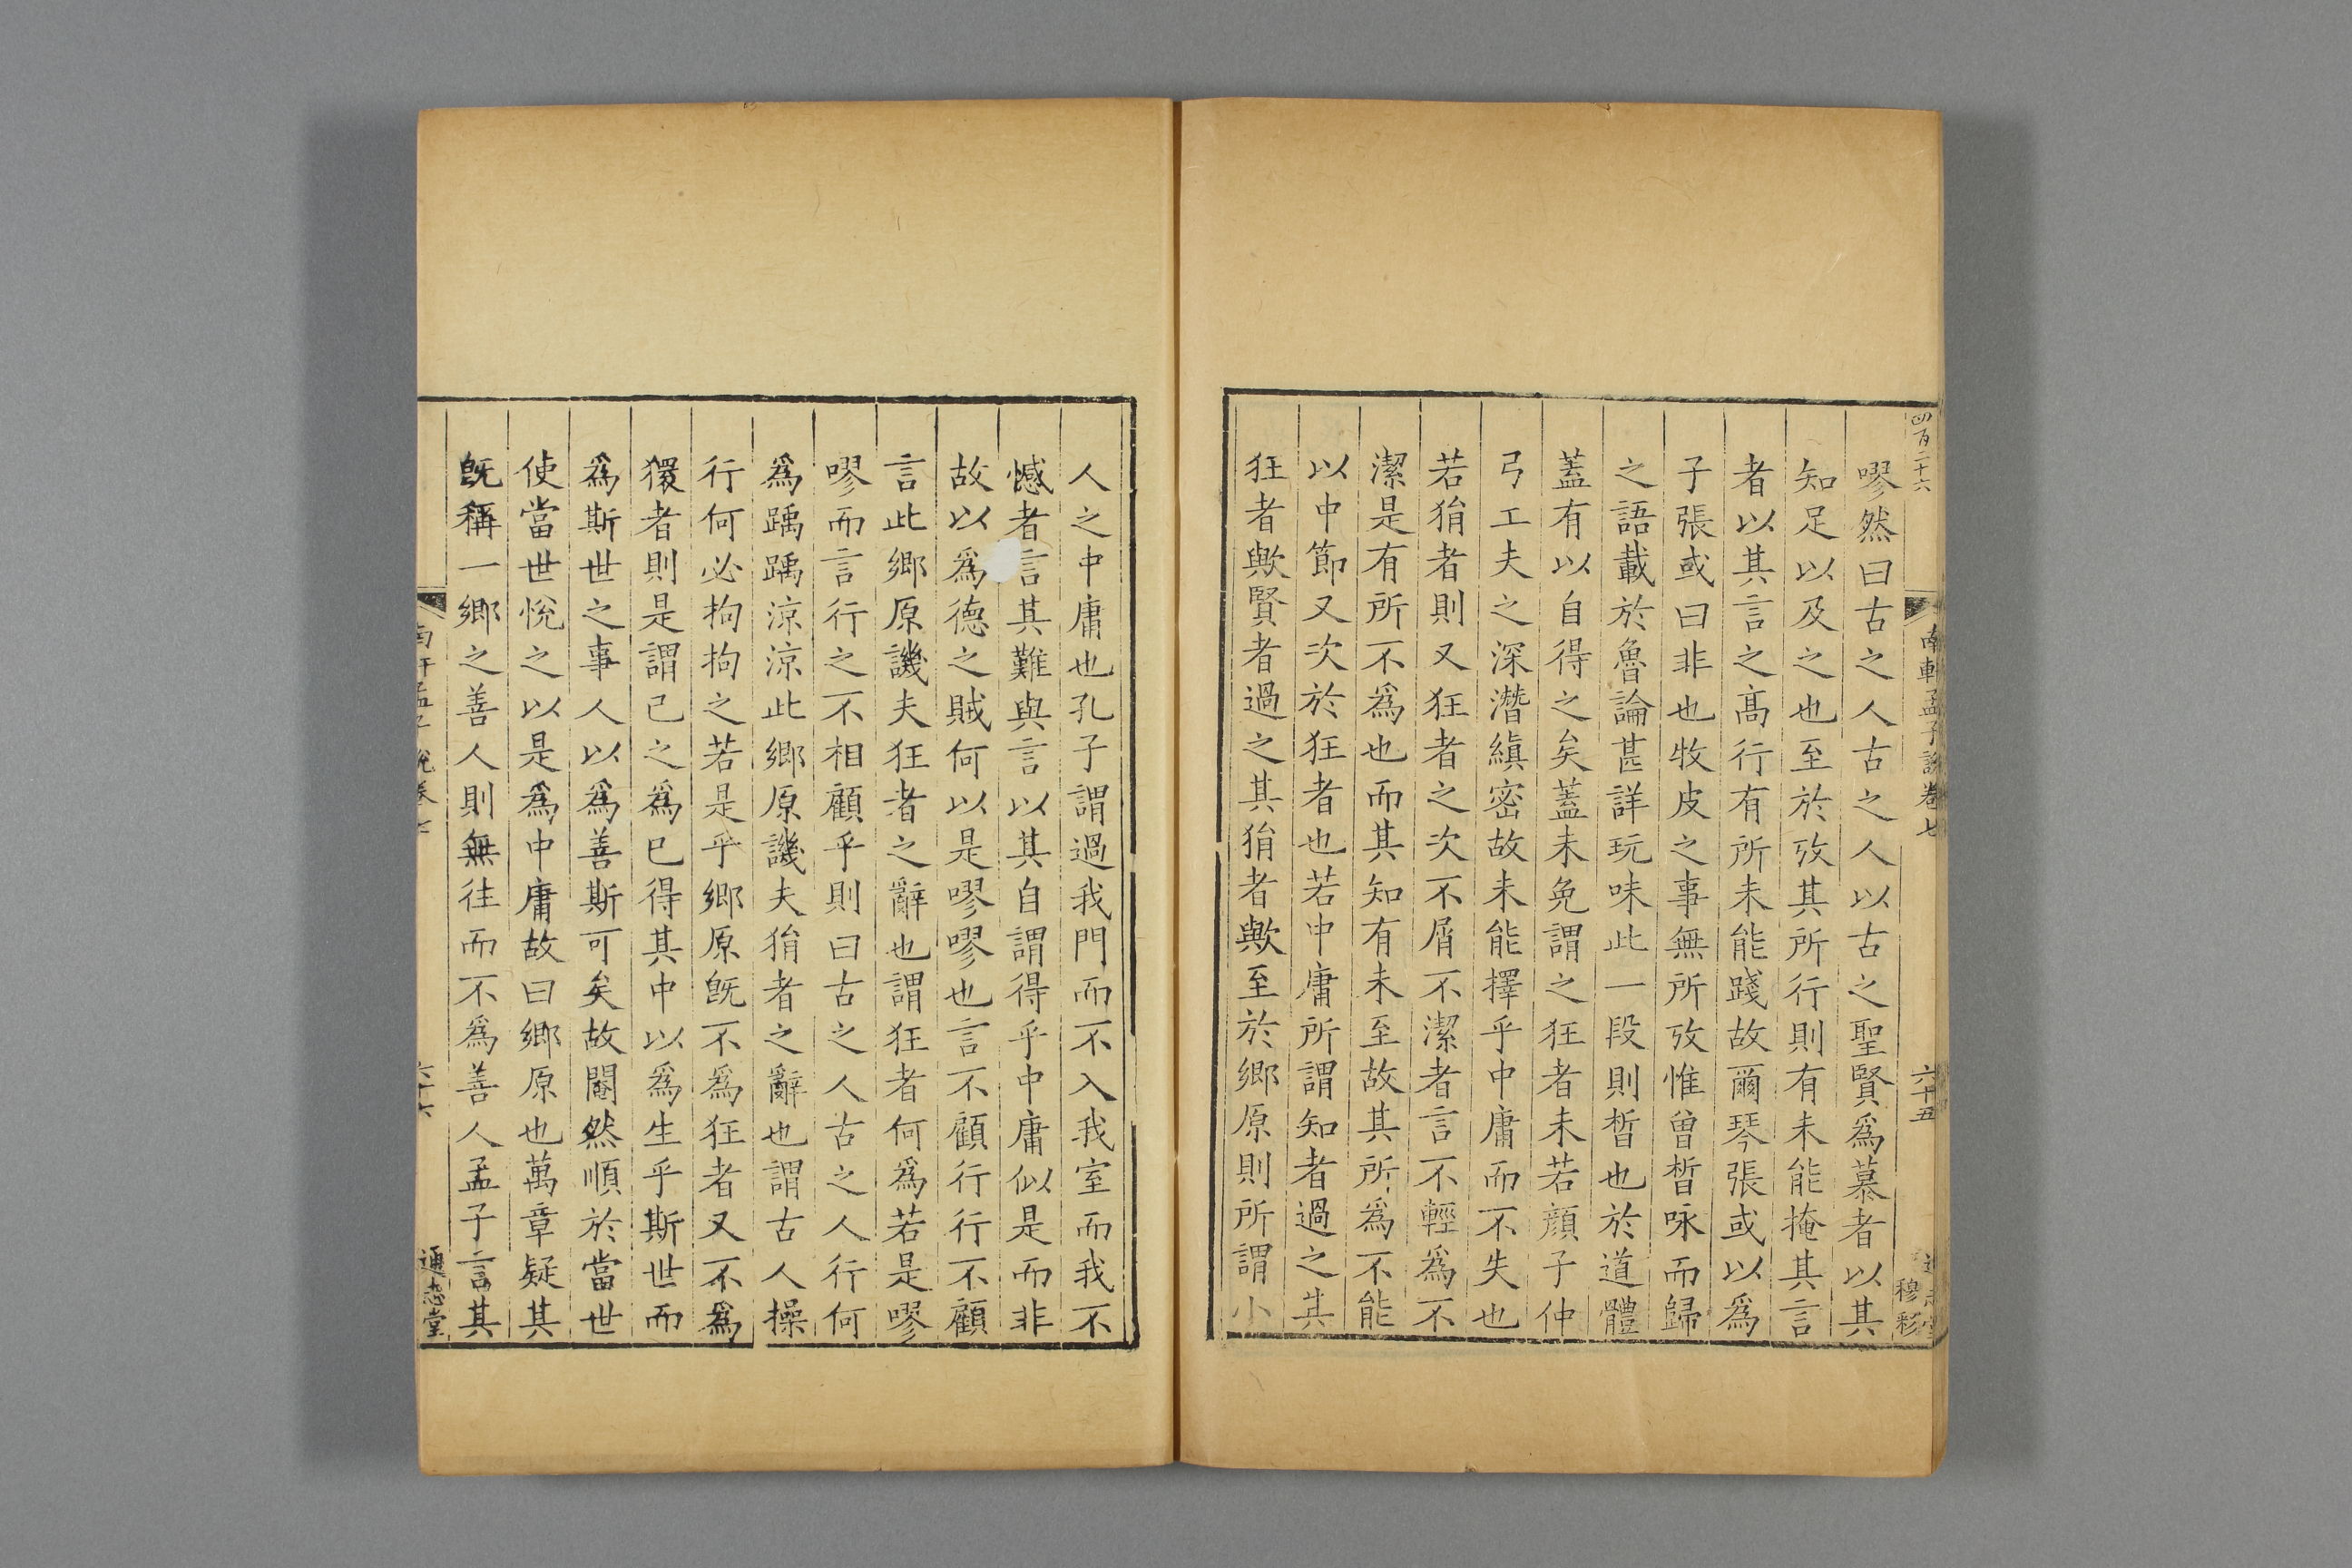 四百二十六
南軒孟子說卷七
六十五
穆彩
嘐然曰古之人古之人以古之聖賢爲慕者以其
知足以及之也至於攷其所行則有未能掩其言
者以其言之高行有所未能踐故爾琴張或以爲
子張或曰非也牧皮之事無所攷惟曾晳咏而歸
之語載於魯論甚詳玩味此一段則晳也於道體
蓋有以自得之矣蓋未免謂之狂者未若顏子仲
弓工夫之深潛縝密故未能擇乎中庸而不失也
若狷者則又狂者之次不屑不潔者言不輕爲不
潔是有所不爲也而其知有未至故其所爲不能
以中節又次於狂者也若中庸所謂知者過之其
狂者歟賢者過之其狷者歟至於鄉原則所謂小
人之中庸也孔子謂過我門而不入我室而我不
憾者言其難與言以其自謂得乎中庸似是而非
故以爲德之賊何以是嘐嘐也言不顧行行不顧
言此鄉原譏夫狂者之辭也謂狂者何爲若是嘐
嘐而言行之不相顧乎則曰古之人古之人行何
爲踽踽涼涼此鄉原譏夫狷者之辭也謂古人操
行何必拘拘之若是乎鄉原旣不爲狂者又不爲
獧者則是謂己之爲已得其中以爲生乎斯世而
爲斯世之事人以爲善斯可矣故閹然順於當世
使當世悅之以是爲中庸故曰鄉原也萬章疑其
旣稱一鄉之善人則無往而不爲善人孟子言其
南軒孟子說卷七
六十六
通志堂